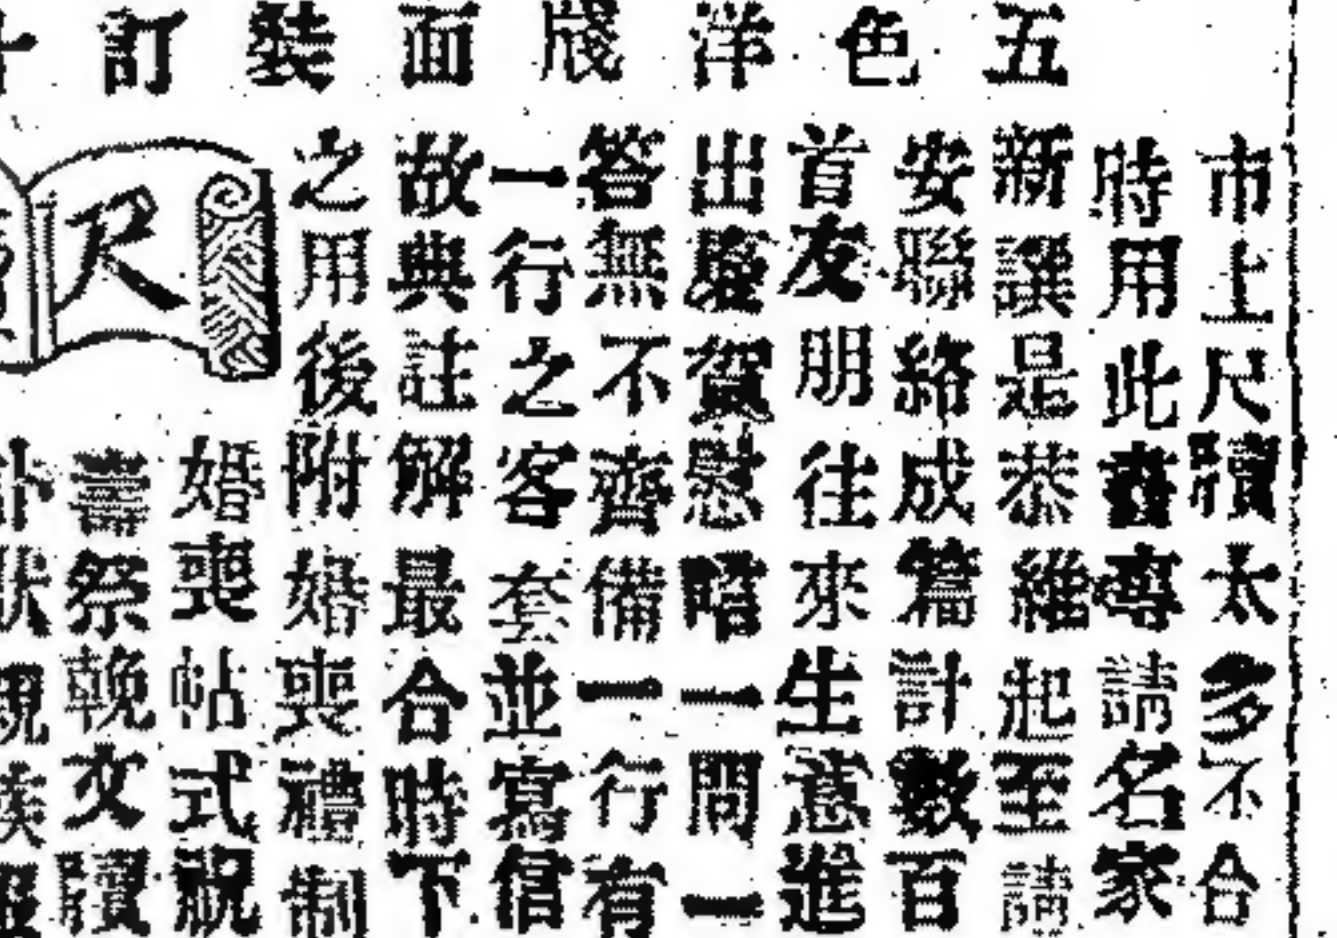 五色洋牋面裝訂
市上尺牘太多不合
時用此書專請名家
新譔是恭維起至請
安聯絡成篇計數百
首友朋往來生意進
出慶賀慰唁一問一
答無不齊備一行有
一行之客套並寫信
故典註解最合時下
之用後附婚喪禮制
尺
婚喪帖式祝
壽祭輓文牘